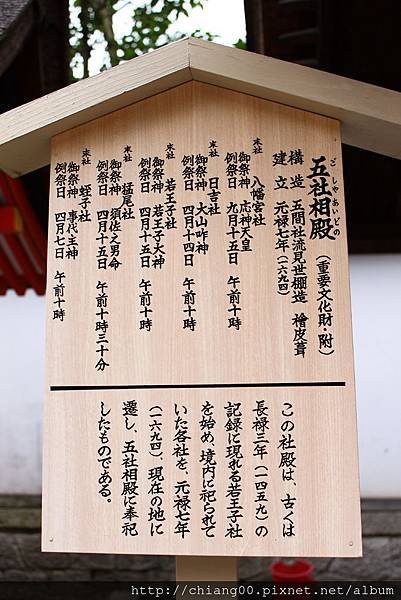 五社相殿（重要文化財・附）
ご しゃ あい どの
構造 五間社流見世棚造 檜皮葺
建立 元禄七年（一六九四）
末社 八幡宮社
御祭神 応神天皇
例祭日 九月十五日 午前十時
末社 日吉社
御祭神 大山咋神
例祭日 四月十四日 午前十時
末社 若王子社
御祭神 若王子大神
例祭日 四月十五日 午前十時
末社 猛尾社
御祭神 須佐之男命
例祭日 四月十五日 午前十時三十分
末社 蛭子社
御祭神 事代主神
例祭日 四月七日 午前十時
この社殿は、古くは
長禄三年（一四五九）の
記録に現れる若王子社
を始め、境内に祀られて
いた各社を、元禄七年
（一六九四）、現在の地に
遷し、五社相殿に奉祀
したものである。
http://chiang00.pixnet.net/album